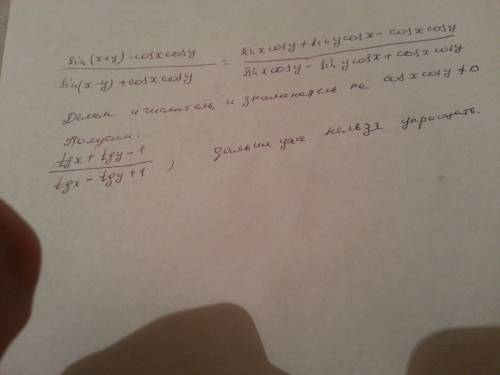 sin(x+y) - cosxcosy / sin(x-y) + cosxcosy = sinxcosy + sinycosx - cosxcosy / sinxcosy - sinycosx + cosxcosy
Делим и числитель, и знаменатель на cosxcosy ≠ 0
Получим:
tgx + tgy - 1 / tgx - tgy + 1 , дальше уже нельзя упрощать.